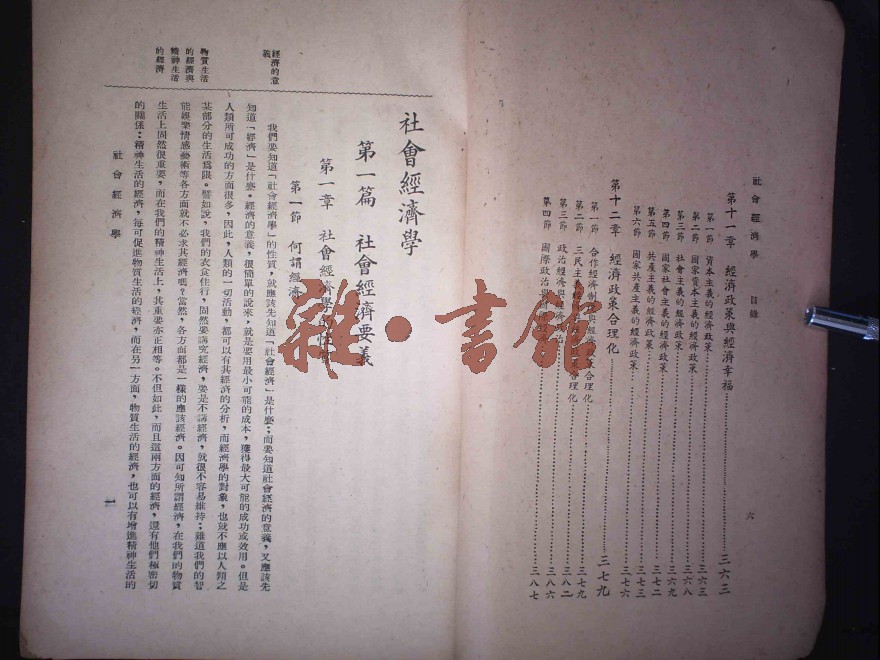 社會經濟學 目錄
六
第十一章 經濟政策與經濟幸福 三六三
第一節 資本主義的經濟政策 三六三
第二節 國家資本主義的經濟政策 三六六
第三節 社會主義的經濟政策 三六八
第四節 國家社會主義的經濟政策 三六九
第五節 共產主義的經濟政策 三七二
第六節 國家共產主義的經濟政策 三七六
第十二章 經濟政策合理化 三七九
第一節 合作經濟制度與經濟政策合理化 三七九
第二節 三民主義 合理化
第三節 政治經濟與 三八二
第四節 國際政治 三八六
三八七
社會經濟學
第一篇 社會經濟要義
第一章 社會經濟學
第一節 何謂經濟
我們要知道「社會經濟學」的性質,就應該先知道「社會經濟」是什麼;而要知道社會經濟的意義,又應該先
知道「經濟」是什麼。經濟的意義,很簡單的說來,就是要用最小可能的成本,獲得最大可能的成功或效用。但是
人類所可成功的方面很多,因此,人類的一切活動,都可以有其經濟的分析,而經濟學的對象,也就不應以人類之
某部分的生活爲限。譬如說,我們的衣食住行,固然要講究經濟,要是不講經濟,就很不容易維持;難道我們的智
能娛樂情感藝術等各方面就不必求其經濟嗎?當然,各方面都是一樣的應該經濟。因可知所謂經濟,在我們的物質
生活上固然很重要,而在我們的精神生活上,其重要亦正相等。不但如此,而且這兩方面的經濟,還有他們極密切
的關係:精神生活的經濟,每可促進物質生活的經濟,而在另一方面,物質生活的經濟,也可以有增進精神生活的
經濟的意
義
物質生活
的經濟與
精神生活
的經濟
社會經濟學
一
雜·書館